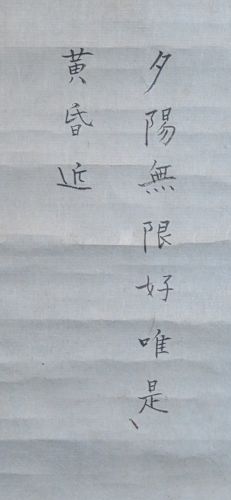 夕陽無限好唯是
黃昏近